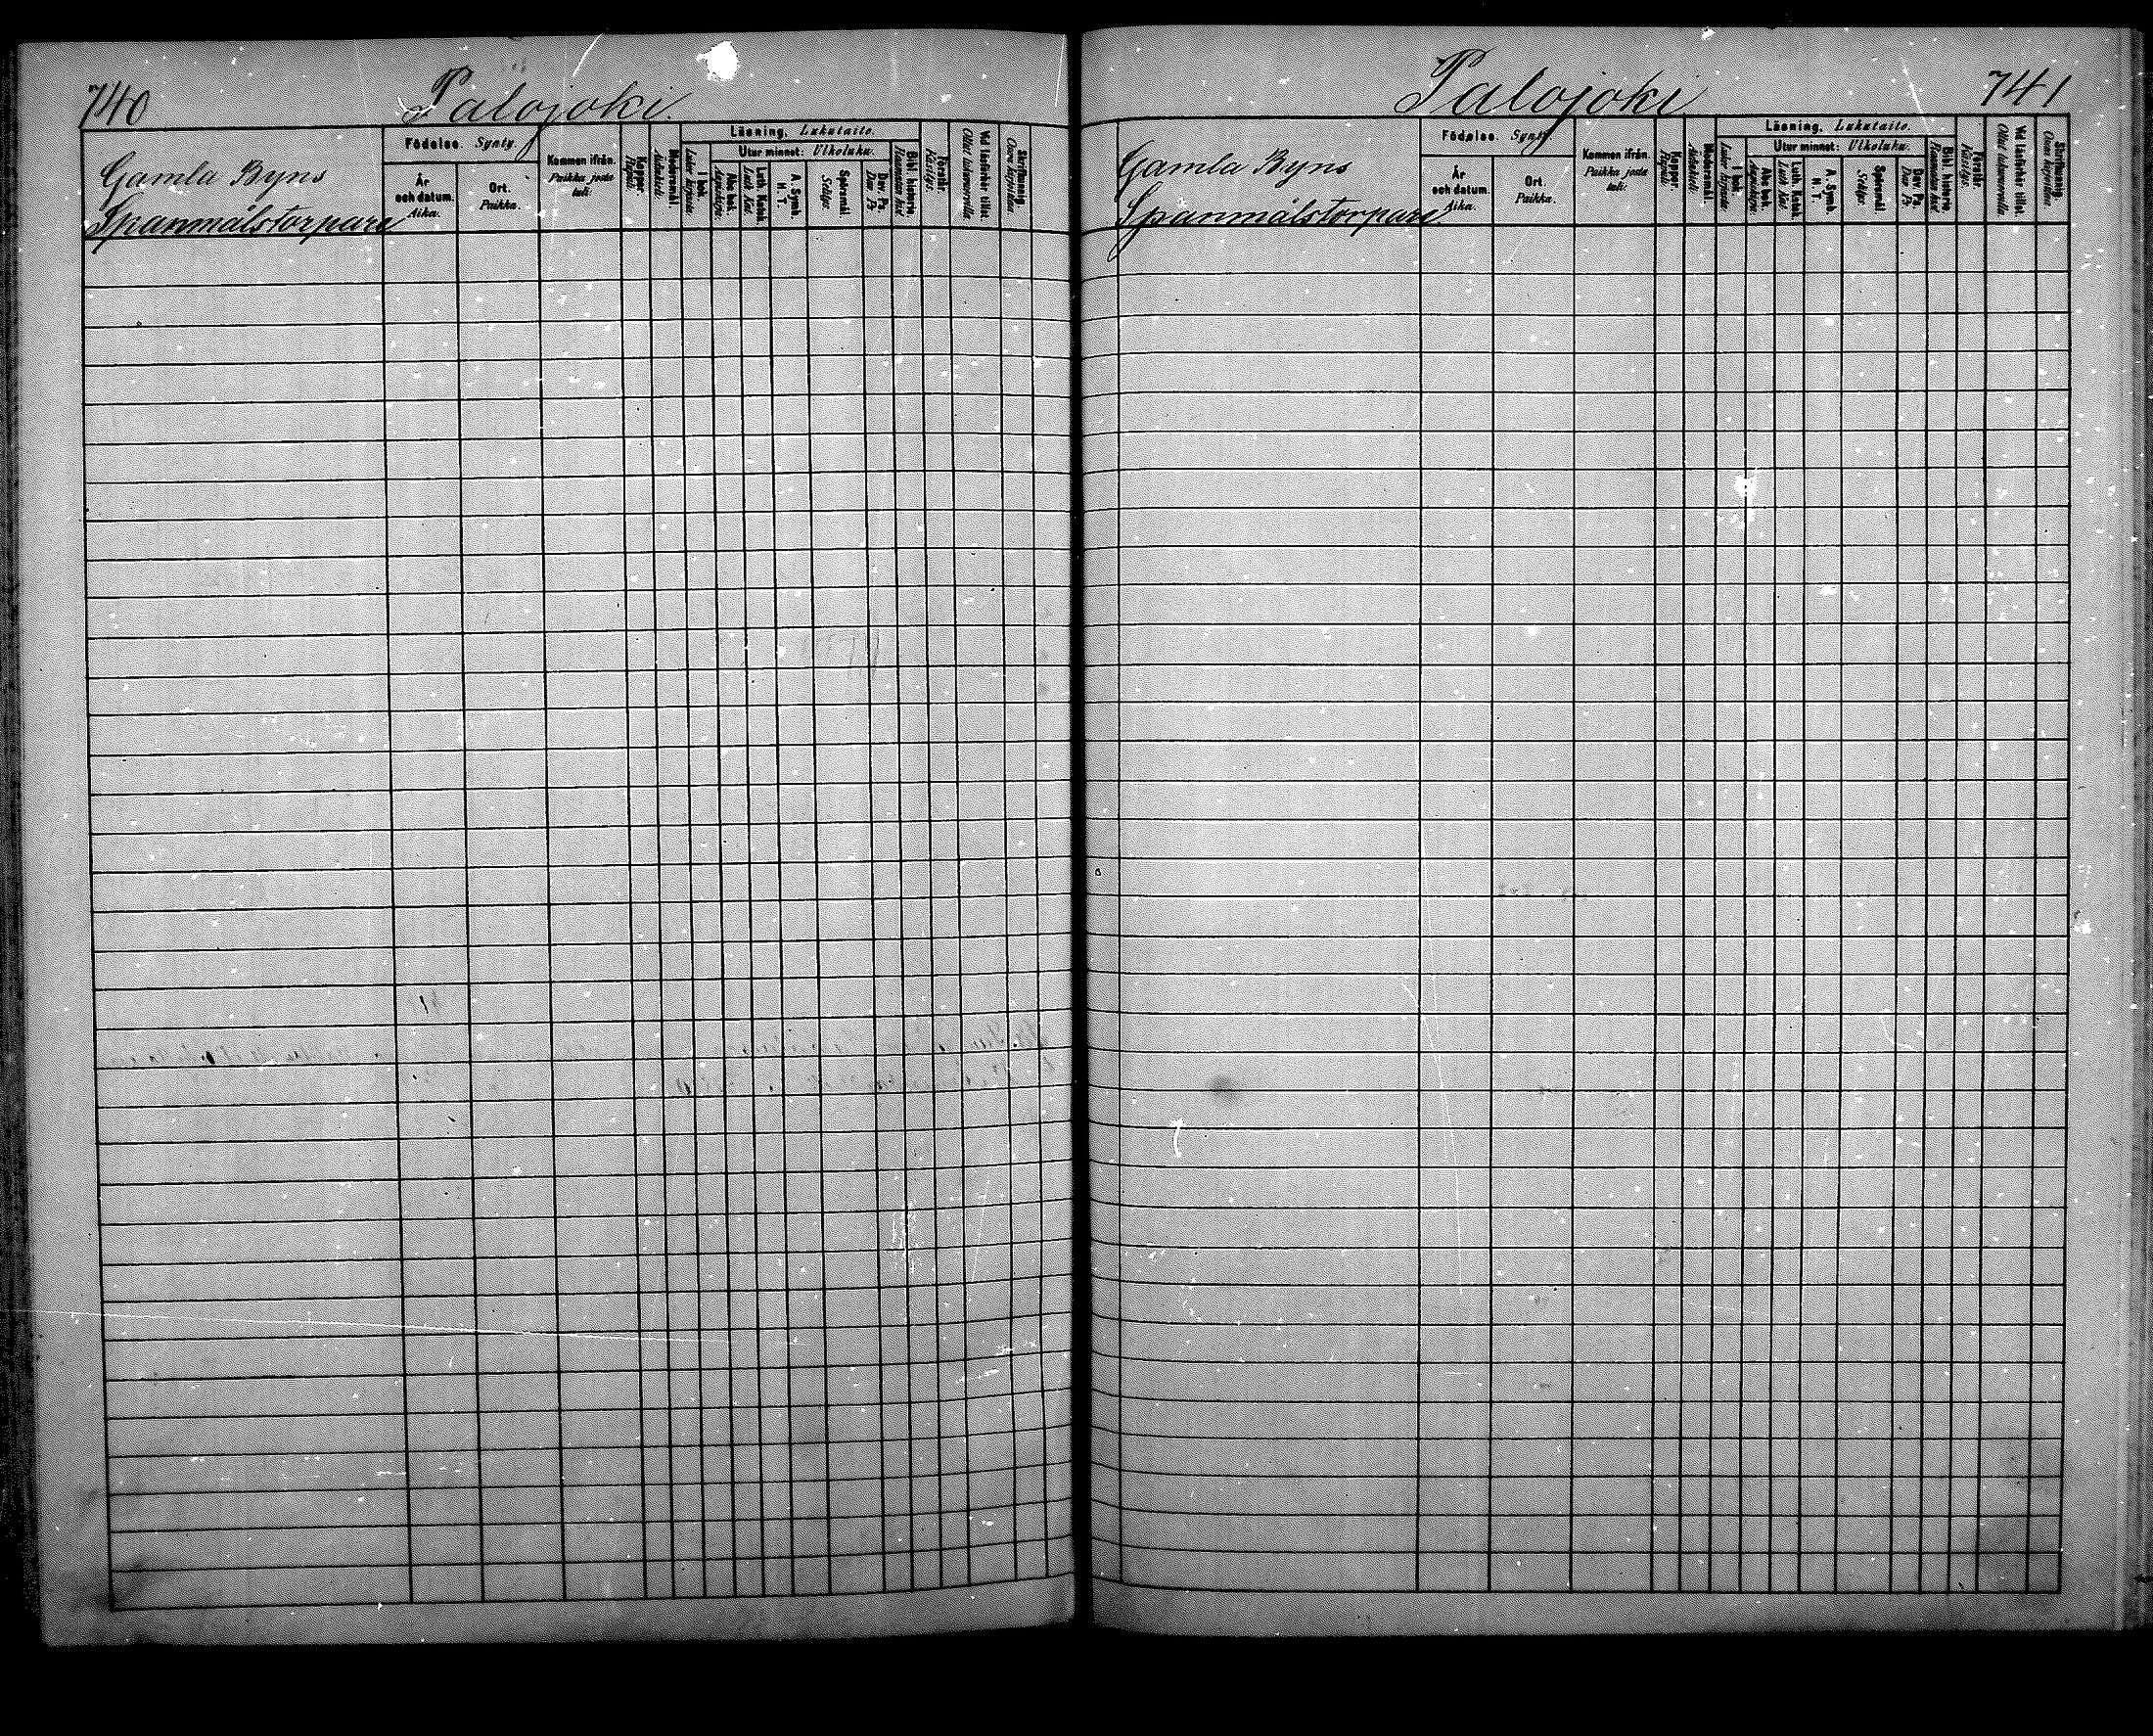 740
Palojoki.
Gamla Byns
Spanmålstorpare
Födelse. Synty.
År och datum. Aika.
Ort. Paikka.
Kommen ifrån. Paikka josta tuli:
Koppor. Rupuli.
Modersmål. Äidinkieli.
Läsning. Lukutaito.
I bok. Luku kirjasta.
Utur minnet: Ulkoluku.
Abc bok. Aapiskirja.
Luth. Katek. Luth. Kat.
A. Symb. H. T.
Spörsmål Selitys.
Dav. Ps. Dav. Ps.
Bibl. historia. Raamatun hist.
Förstår. Käsitys.
Vid läsförhör tillst. Ollut lukuvuorolla.
Skriftkunnig. Osaa kirjoittaa.
Palojoki
741
Gamla Byns
Spanmålstorpare.
Födelse. Synty.
År och datum. Aika.
Ort. Paikka.
Kommen ifrån. Paikka josta tuli:
Koppor. Rupuli.
Modersmål. Äidinkieli.
Läsning. Lukutaito.
I bok. Luku kirjasta.
Utur minnet: Ulkoluku.
Abc bok. Aapiskirja.
Luth. Katek. Luth. Kat.
A. Symb. H. T.
Spörsmål Selitys.
Dav. Ps. Dav. Ps.
Bibl. historia. Raamatun hist.
Förstår. Käsitys.
Vid läsförhör tillst. Ollut lukuvuorolla.
Skriftkunnig. Osaa kirjoittaa.